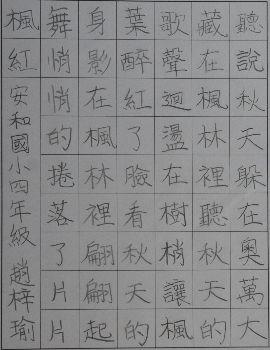 聽說秋天躲在奧萬大
藏在楓林裡聽秋天的
歌聲迴盪在樹梢讓楓
葉醉紅了臉看秋天的
身影在楓林裡翩翩起
舞悄悄的捲落了片片
楓紅 安和國小四年級 趙梓瑜